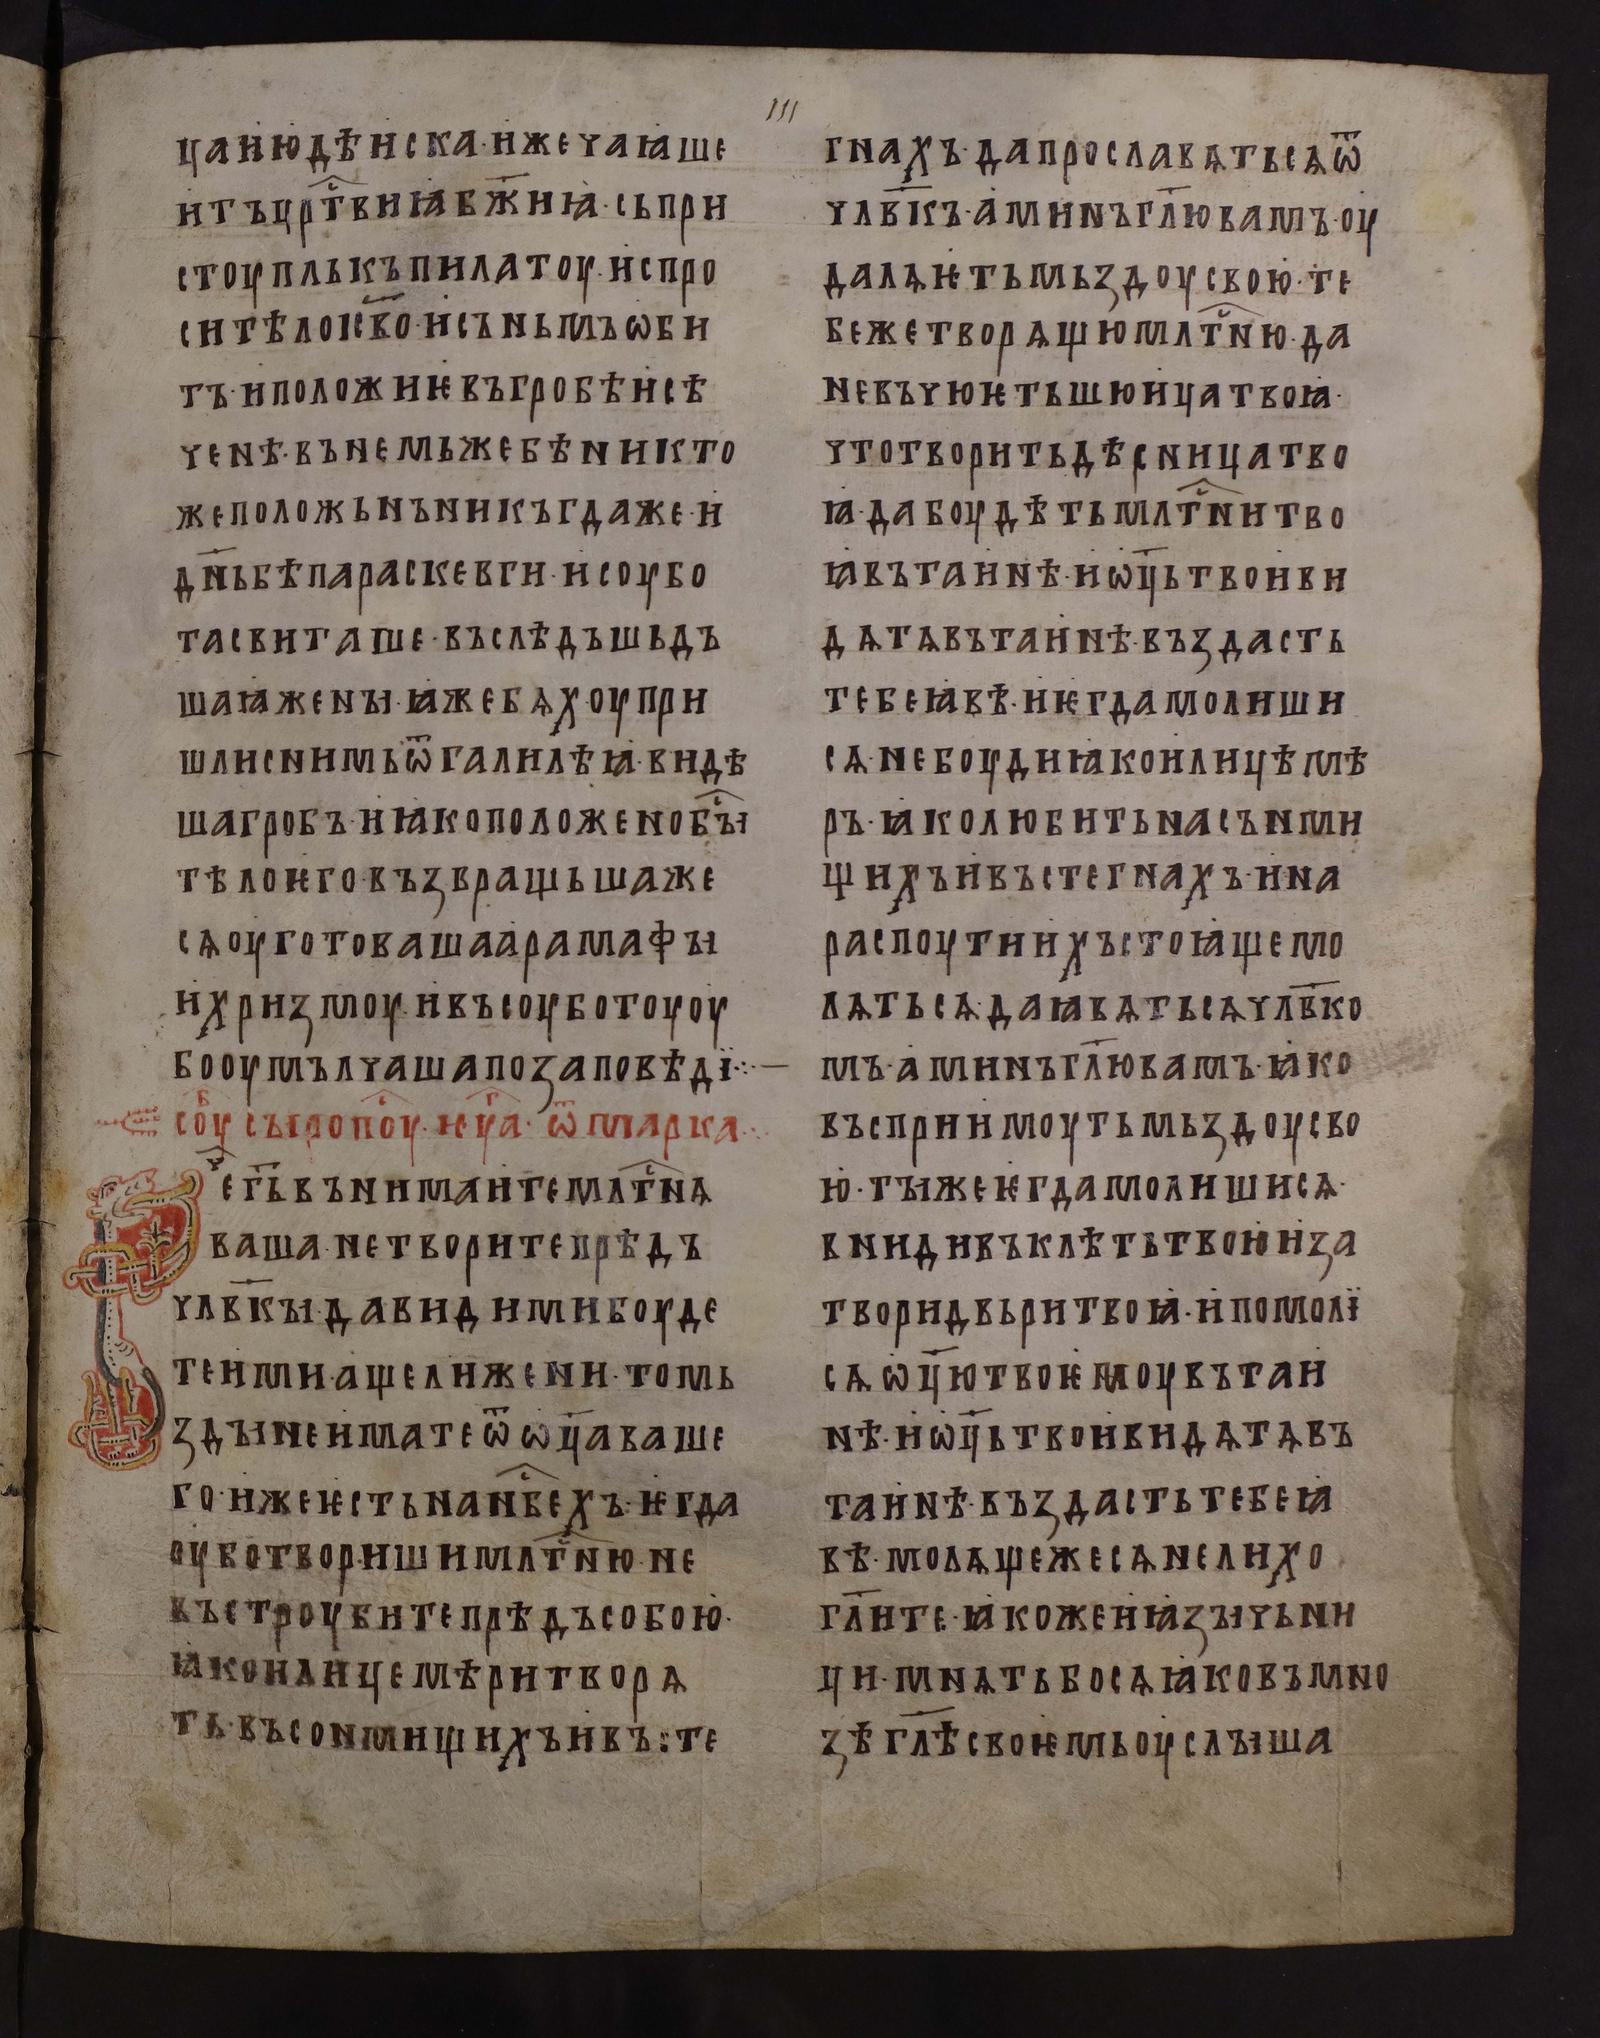 111
ца июдѣиска· иже чаꙗше
и тъ црⷭ҇твиꙗ бж҃иꙗ· сь при
стоупль къ пилатоу· испро
си тѣло ѥв҃о· и съньмъ ѡби
тъ· и положи ѥ въ гробѣ исѣ
ченѣ· въ немьже бѣ никто
же положьнъ никъгдаже· и
дн҃ь бѣ параскевгии· и соубо
та свиташе· въслѣдъ шьдъ
шаꙗ жены· ꙗже бѧхоу при
шли с нимь ѿ галилѣꙗ· видѣ
ша гробъ· и ꙗко положено бꙑⷭ҇
тѣло ѥго· възвращьшаже
сѧ оуготоваша арамафꙑ
и хризмоу· и въ соуботоу оу
бо оумълчаша по заповѣдї·:·—
соуⷠ҇ сꙑропоⷭ҇у· ѥуⷢ҇а· ѿ марка·:
Рⷱ҇е гь҃ вънимаите млⷭ҇тнѧ
ваша· не творите прѣдъ
члв҃кꙑ· да видими боуде
те ими· аще ли же ни· то мь
здꙑ не имате ѿ ѡц҃а ваше
го· иже ѥсть на нб҃ⷭ҇ехъ· ѥгда
оубо твориши млⷭ҇тню· не
въстроубите прѣдъ собою·
ꙗко и лицемѣри творѧ
ть· въ сонмищихъ и въ сте
гнахъ· да прославѧтьсѧ ѿ
члв҃къ· аминъ гл҃ю вамъ· оу
далѧѥть мьздоу свою· те
бе же творѧщю млⷭ҇тню· да
не въчюѥть шюица твоꙗ·
что творить дѣсница тво
ꙗ· да боудѣть млⷭ҇тни тво
ꙗ въ таинѣ· и ѡц҃ь твои ви
дѧ тѧ въ таинѣ· въздасть
тебе ꙗвѣ· и ѥгда молиши
сѧ· не боуди ꙗко и лицѣмѣ
ръ· ꙗко любить на сънми
щихъ и въ стегнахъ· и на
распоутиихъ стоꙗще мо
лѧтьсѧ· да ꙗвѧтьсѧ члв҃ко
мъ· аминъ гл҃ю вамъ· ꙗко
въсприимоуть мьздоу сво
ю· тꙑ же ѥгда молишисѧ·
вниди въ клѣть твою и за
твори двьри твоꙗ· и помолї
сѧ ѡц҃ю твоѥмоу въ таи
нѣ· и ѡц҃ь твои видѧ тѧ въ
таинѣ· въздасть тебе ꙗ
вѣ· молѧще же сѧ не лихо
гл҃ите· ꙗкоже и ꙗзꙑчьни
ци· мнѧть бо сѧ ꙗко въ мно
зѣ гл҃ѣ своѥмь оуслꙑша